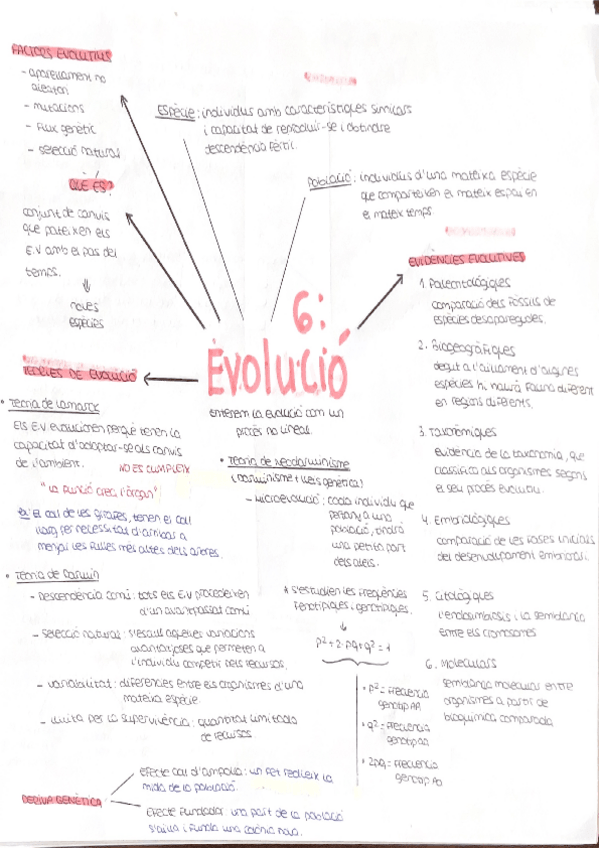 FACTORS EVOLUTIUS
- aparellament no
aleatori
- mutacions
- Flux genètic
- selecció natural
Espècie: individus amb característiques similars
i capacitat de reproduir-se i obtindre
descendència fèrtil.
Població: individus d'una mateixa espècie
que comparteixen el mateix espai en
el mateix temps.
QUÈ ÉS?
conjunt de canvis
que pateixen els
E.V amb el pas del
temps.
↓
noves
espècies
6:
Evolució
EVIDÈNCIES EVOLUTIVES
1. Paleontològiques
comparació dels fòssils de
espècies desaparegudes.
2. Biogeogràfiques
degut a l'aïllament d'algunes
espècies hi haurà fauna diferent
en regions diferents.
3. Taxonòmiques
evidència de la taxonomia, que
classifica als organismes segons
el seu procés evolutiu.
4. Embriològiques
comparació de les fases inicials
del desenvolupament embrionari.
5. Citològiques
l'endosimbiosis i la semblança
entre els cromosomes
6. Moleculars
semblança molecular entre
organismes a partir de
bioquímica comparada
TEORIES DE EVOLUCIÓ
• Teoria de Lamarck
Els E.V evolucionen perquè tenen la
capacitat d'adaptar-se als canvis
de l'ambient.
NO ES CUMPLEIX
"La funció crea l'òrgan"
Ex: el coll de les girafes, tenen el coll
llarg per necessitat d'arribar a
menjar les fulles més altes dels arbres.
• Teoria de Darwin
- Descendència comú: tots els E.V procedeixen
d'un avantpassat comú
- selecció natural: s'establ aquelles variacions
avantatjoses que permeten a
l'individu competir pels recursos.
- variabilitat: diferències entre els organismes d'una
mateixa espècie.
- lluita per la supervivència: quantitat limitada
de recursos
entenem la evolució com un
procés no lineal.
• Teoria de neodarwinisme
(darwinisme + lleis genètica)
- Microevolució: cada individu que
pertany a una
població, tindrà
una petita part
dels al·lels.
* s'estudien les freqüències
fenotípiques i genotípiques.
↓
p²+2·pq+q²=1
• p² = Freqüència
genotip AA
• q² = Freqüència
genotip aa
• 2pq = Freqüència
genotip Aa
DERIVA GENÈTICA
efecte coll d'ampolla: un fet redueix la
mida de la població.
efecte fundador: una part de la població
s'aïlla i funda una colònia nova.